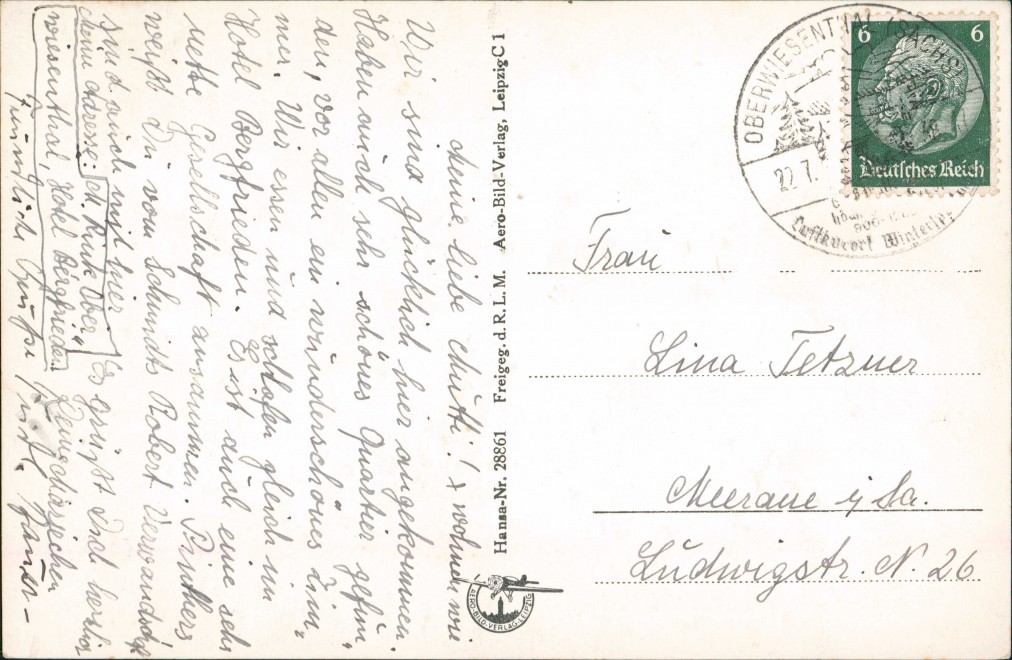 Meine liebe Mutti! + wohnen wir
Wir sind glücklich hier angekommen.
Haben auch sehr schönes Quartier gefun,
den, vor allen ein wunderschönes Zim,
mer. Wir essen und schlafen gleich im
Hotel Bergfrieden. Es ist auch eine sehr
nette Gesellschaft zusammen.
weißt Du vom Schmidt Robert Verwandsch
sind auch mit hier. Es grüßt Dich herzlich
Meine Adresse: M. Rink Ober,
wiesenthal, Hotel „Bergfrieden"
Hansa-Nr. 28861 Freigeg. d. R. L. M. Aero-Bild-Verlag, Leipzig C 1
AERO-BILD-VERLAG-LEIPZIG
OBERWIESENTHAL (SACHS)
22.7.
Luftkurort
6 6
Deutsches Reich
Frau
Lina Tetzner
Meerane i/Sa.
Ludwigstr. N. 26